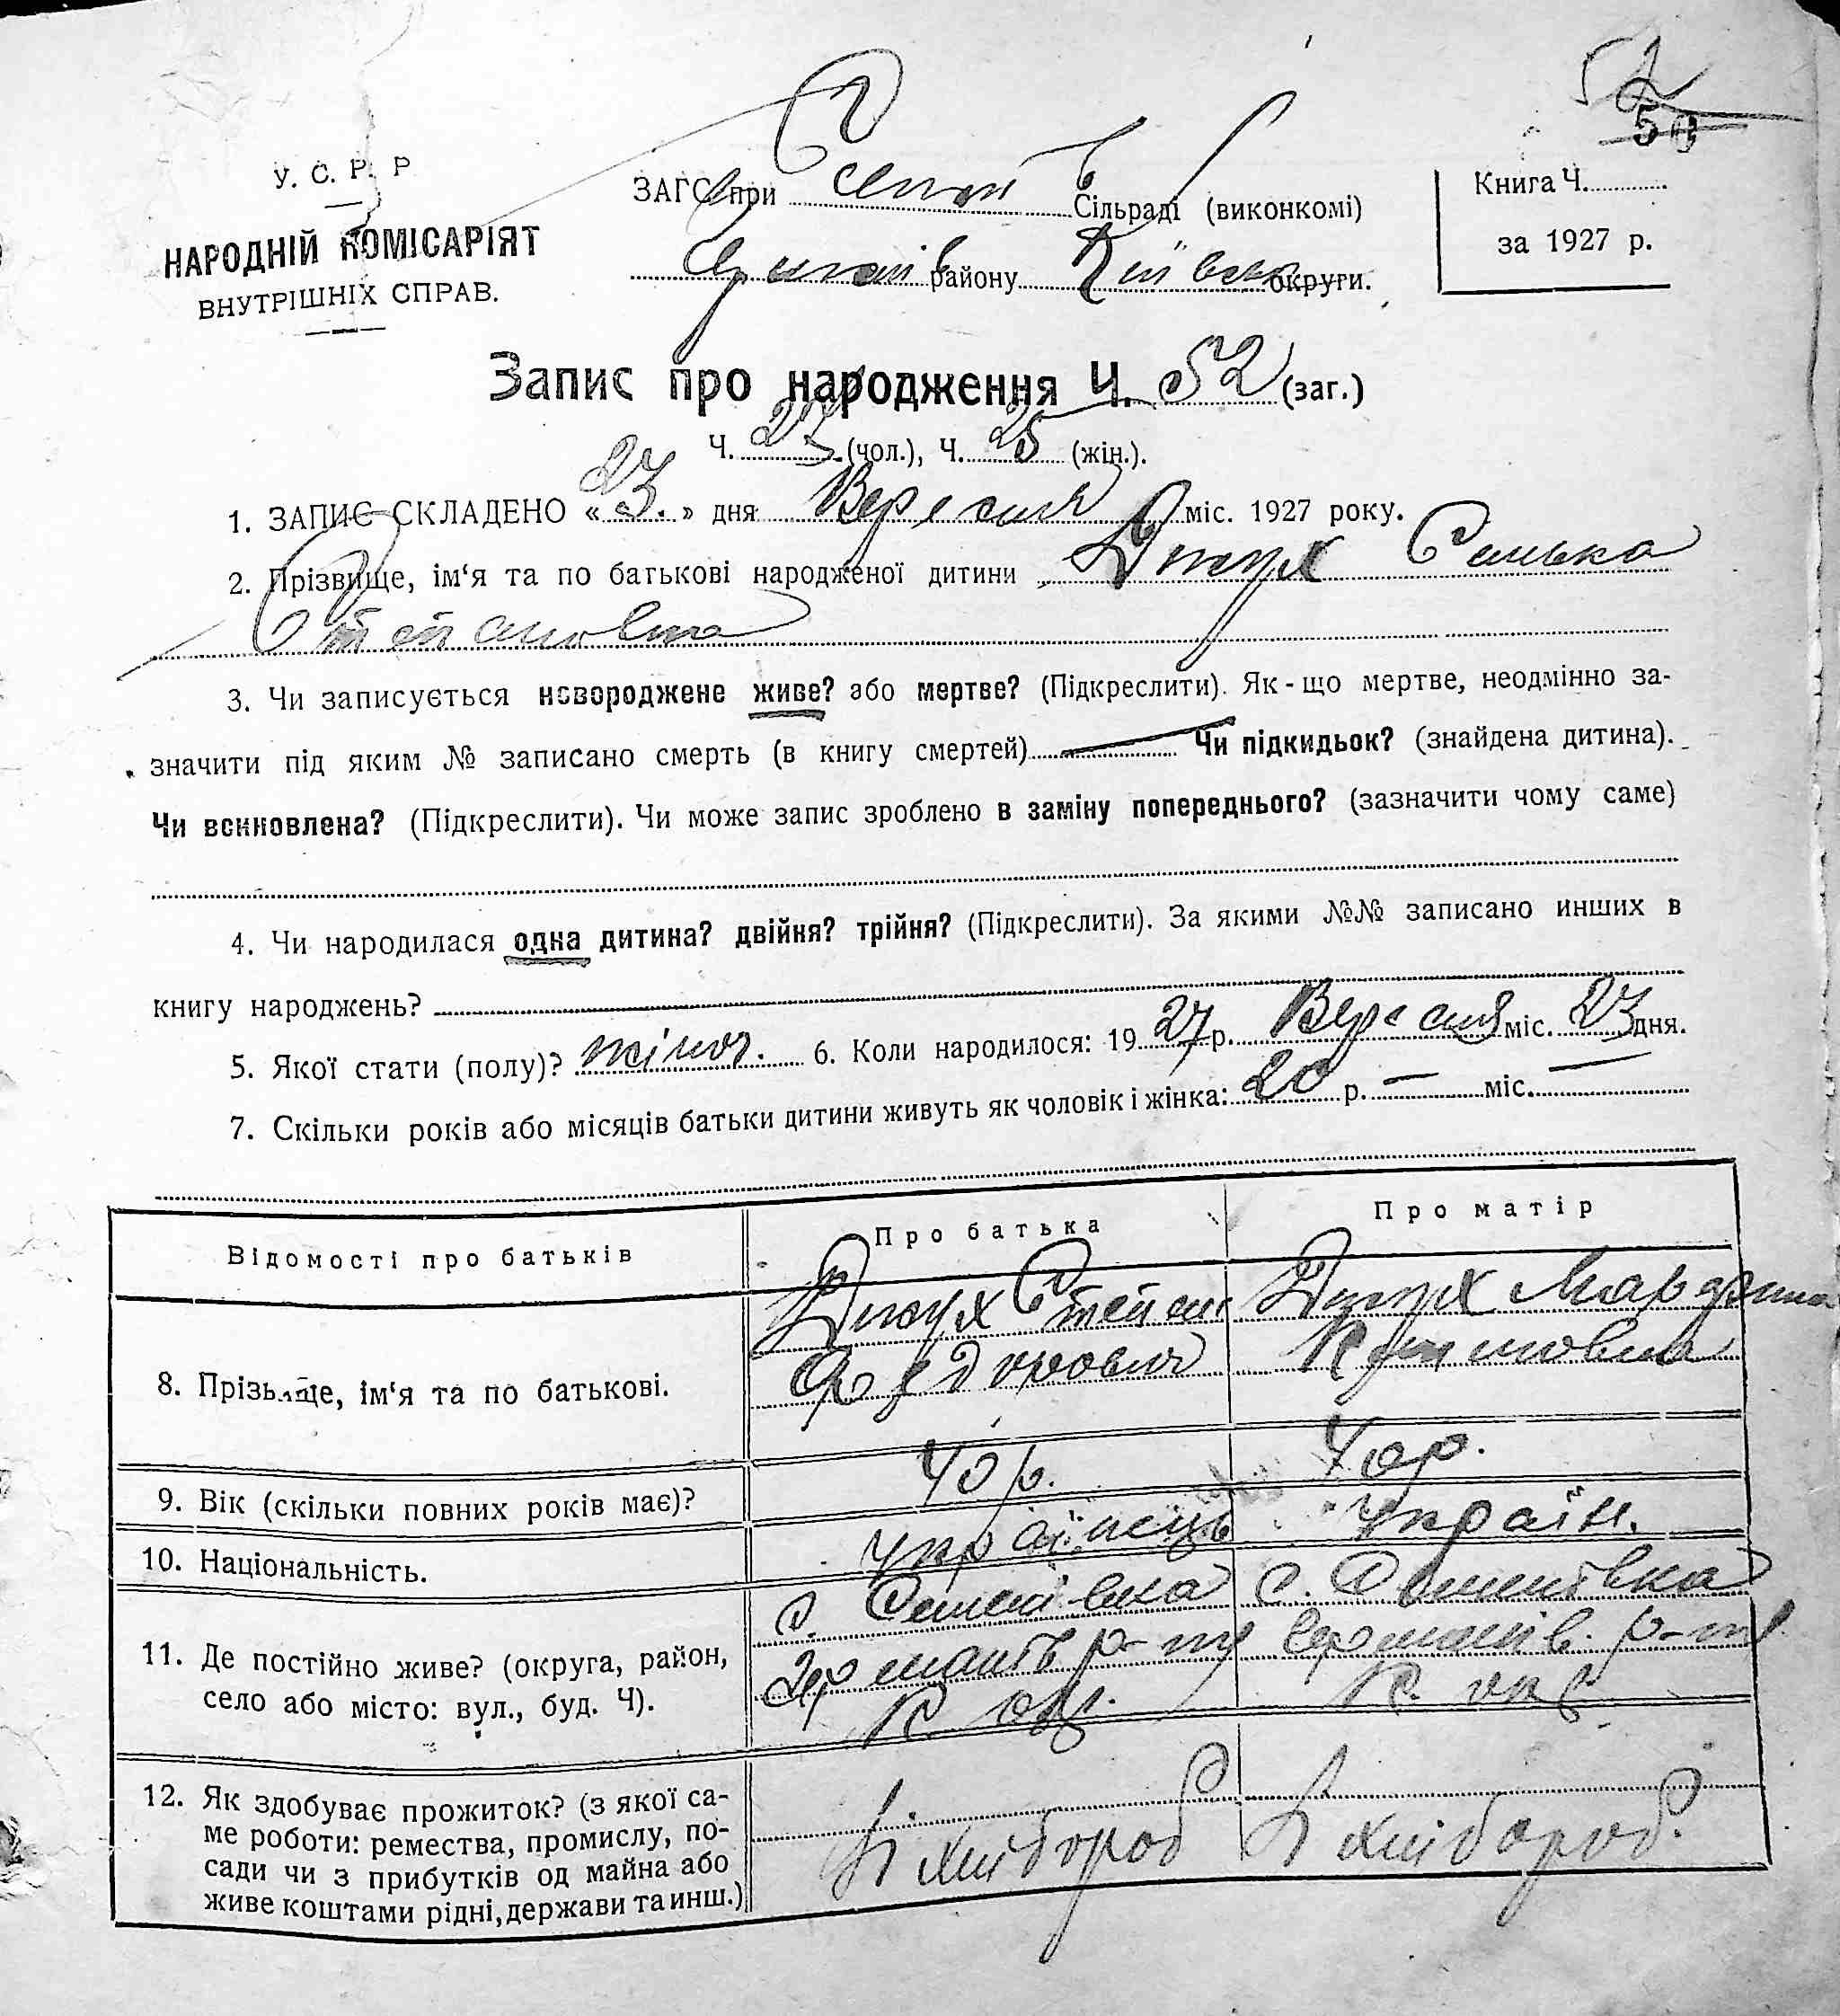 52
50
У. С. Р. Р
НАРОДНІЙ КОМІСАРІЯТ
ВНУТРІШНІХ СПРАВ.
ЗАГС при Сільраді (виконкомі)
району Київськ округи.
Книга Ч.
за 1927 р.
Запис про народження Ч. 52 (заг.)
Ч. 27 (чол.), Ч. 25 (жін.).
1. ЗАПИС СКЛАДЕНО « 23. » дня Вересня міс. 1927 року.
2. Прізвище, ім‘я та по батькові народженої дитини Джух
Степановна
3. Чи записується новороджене живе? або мертве? (Підкреслити). Як-що мертве, неодмінно за-
значити під яким № записано смерть (в книгу смертей) Чи підкидьок? (знайдена дитина).
Чи всиновлена? (Підкреслити). Чи може запис зроблено в заміну попереднього? (зазначити чому саме)
4. Чи народилася одна дитина? двійня? трійня? (Підкреслити). За якими №№ записано инших в
книгу народжень?
5. Якої стати (полу)? жіноч. 6. Коли народилося: 19 27 р. Вересня міс. 23 дня.
7. Скільки років або місяців батьки дитини живуть як чоловік і жінка: 20 р. — міс. —
Відомості про батьків
Про батька
Про матір
8. Прізвище, ім‘я та по батькові.
Джух Степан
Федорович
Джух
9. Вік (скільки повних років має)?
40 р.
40 р.
10. Національність.
українець
україн.
11. Де постійно живе? (округа, район,
село або місто: вул., буд. Ч).
с. Семенівка
р-ну
К окр.
с. Семенівка
Германів. р-ну
К. окр.
12. Як здобуває прожиток? (з якої са-
ме роботи: ремества, промислу, по-
сади чи з прибутків од майна або
живе коштами рідні, держави та инш.)
Хлібороб
Хлібороб.